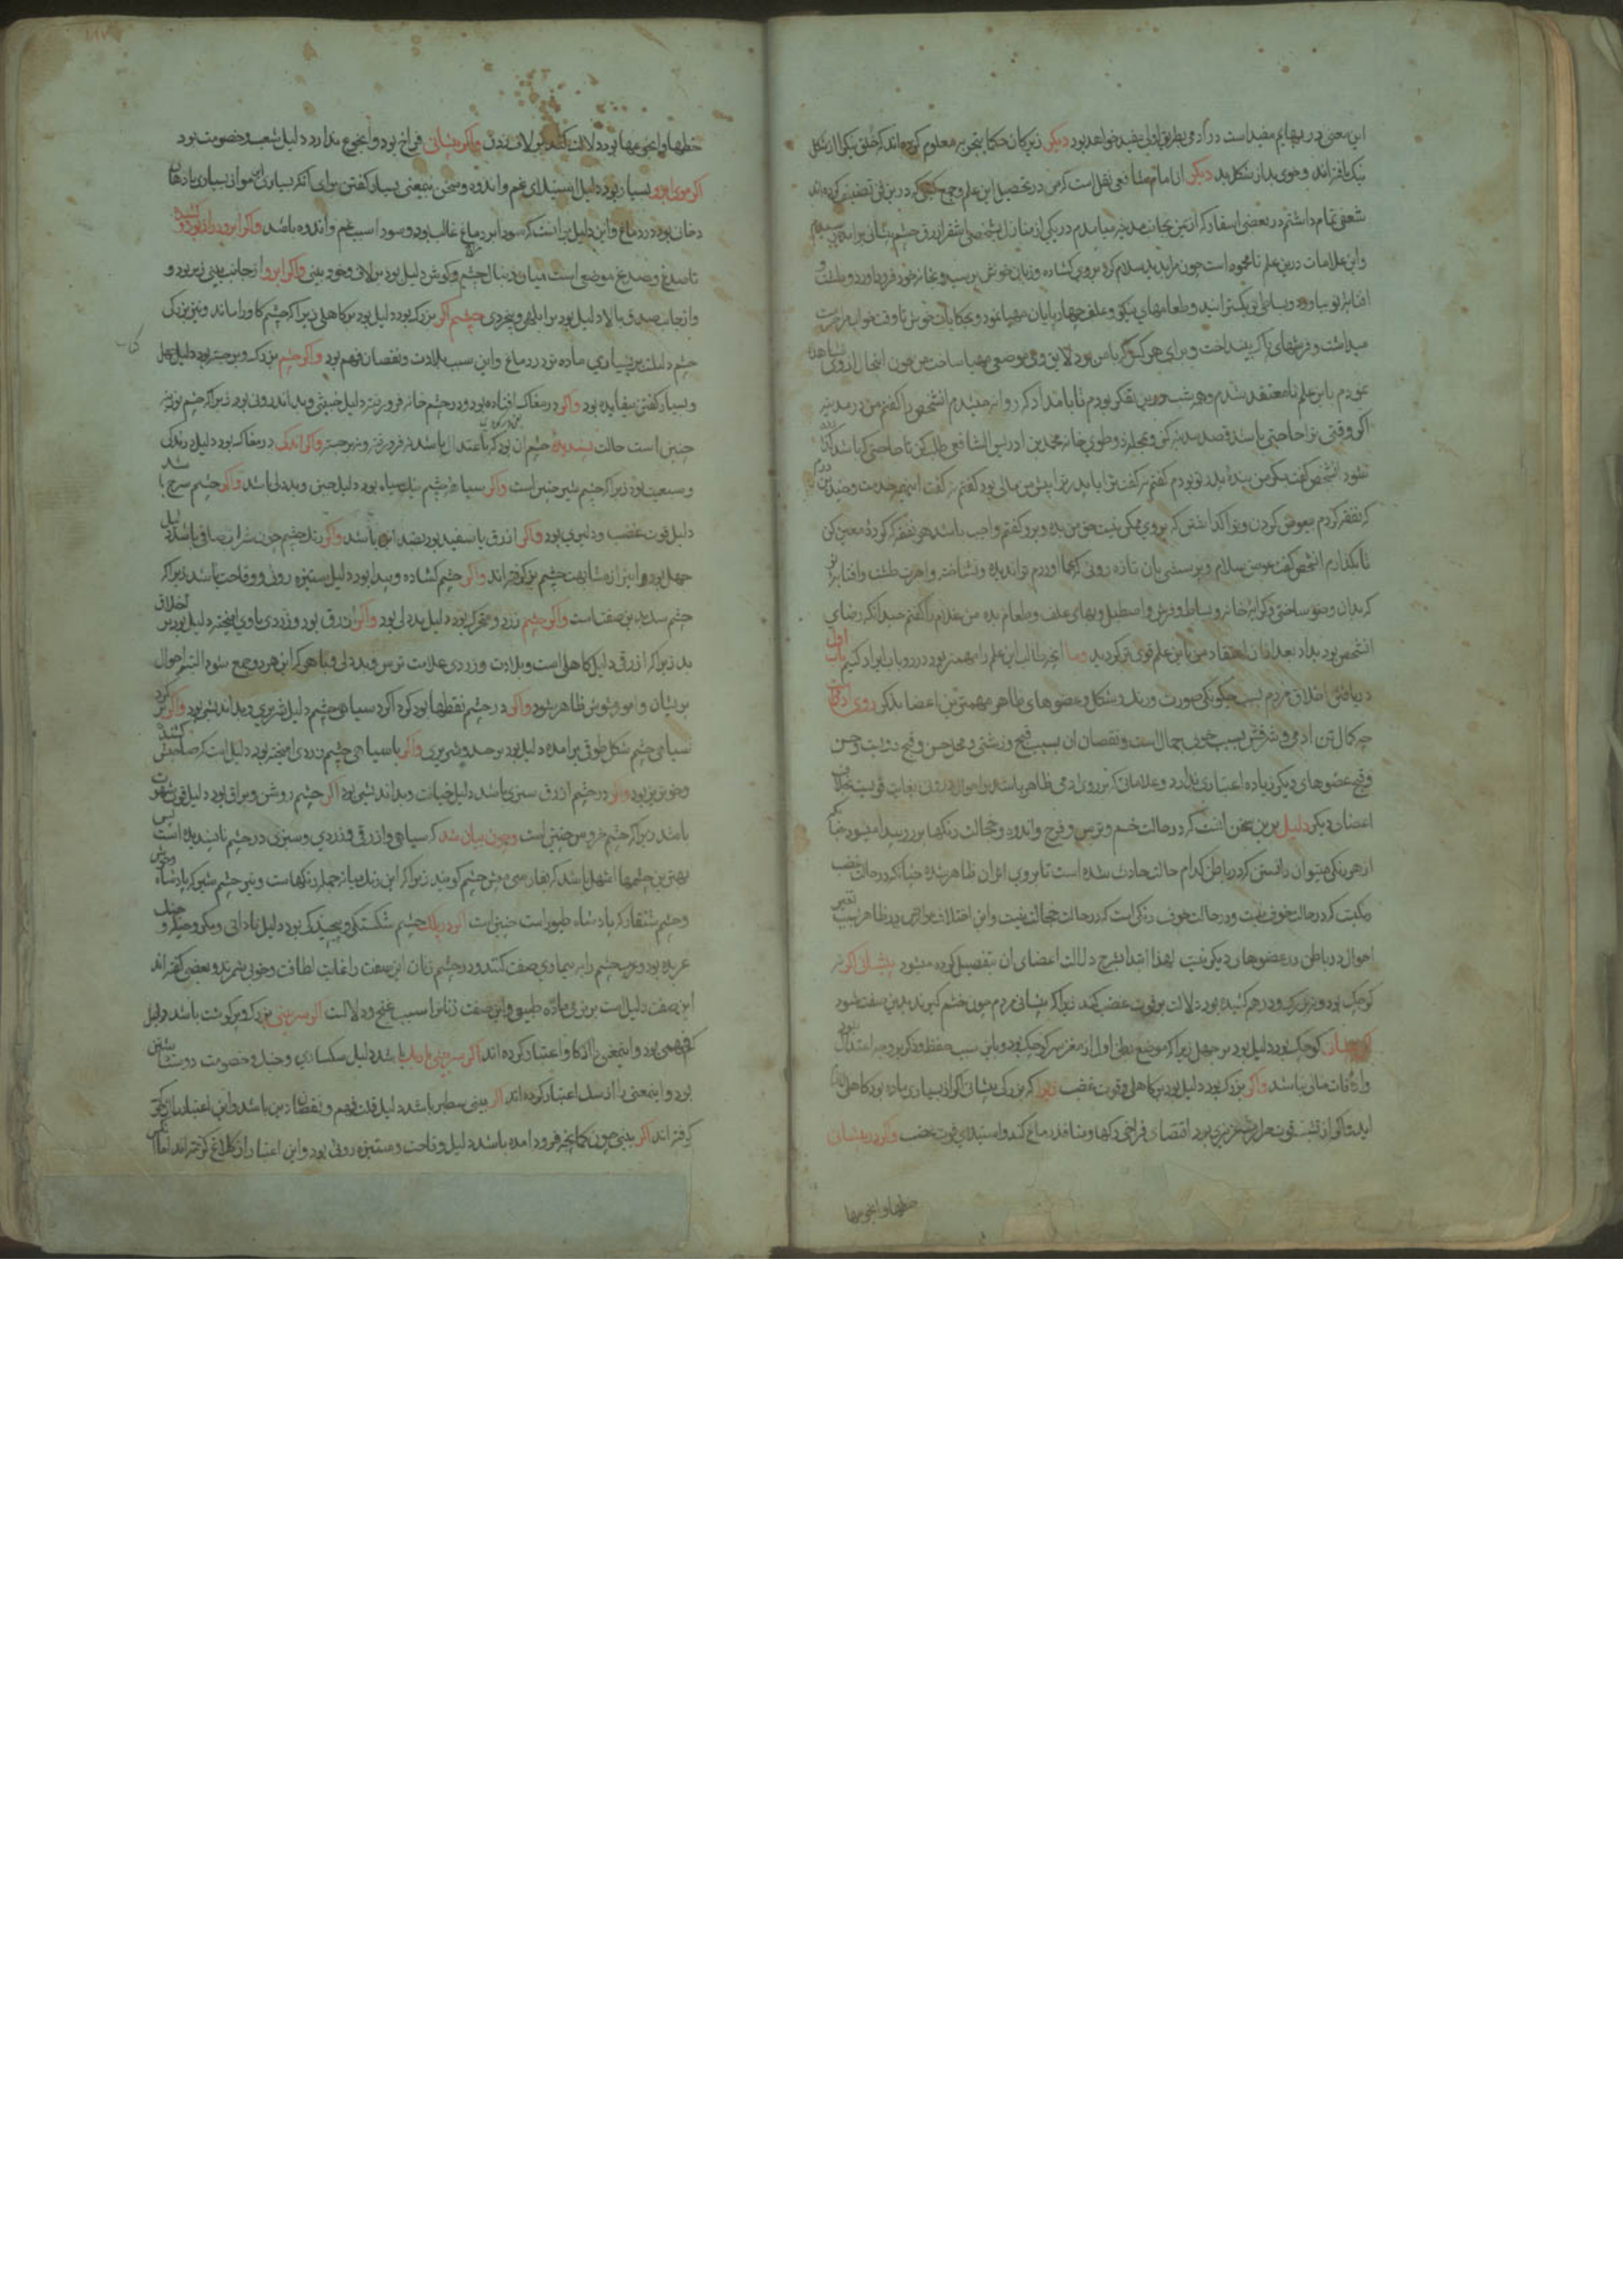 این معنی در بهایم مفید است در آدمی بطریق اولی مفید خواهد بود دیگر زیرکان حکما بتجربه معلوم کرده‌اند که خلق نیک از شکل
نیک یافته‌اند و خوی بد از شکل بد دیگر از امام شافعی نقل است که من در تحصیل این علم و جمع کتبی که درین فن تصنیف کرده‌اند
شعفی تمام داشتم در بعضی اسفار که از یمن بجانب مدینه میامدم در یکی از منازل بشخصی اشقر ازرق چشم پیشانی برآمده رسیدم
و این علامات درین علم نامحمود است چون مرا بدید سلام کرد بروی گشاده و زبان خوش بپرسید و بخانه خود فرود آورد و طشت و
افتابه نو بیاورد و بساطی نو بگسترانید و طعامهای نیکو و علف چهارپایان مهیا نمود و بحکایات خوش تا وقت خواب مرا
میداشت و فرشهای پاک بینداخت و برای هر کس که با من بود لایق وی موضعی مهیا ساخت من چون این حال از وی مشاهده
نمودم باین علم نامعتقد شدم و همه شب درین تفکر بودم تا بامداد که روانه میشدم آن شخص را گفتم من در مدینه
اگر وقتی ترا حاجتی باشد قصد مدینه کن و بمحله ذو طوی خانه محمد بن ادریس الشافعی طلب کن تا حاجتی که باشد گذارده
شود آن شخص گفت مگر من بنده پدر تو بودم گفتم نه گفت ترا یا پدر ترا پیش من مالی بود گفتم نه گفت این همه خدمت و چندین
که تفقد کردم بعوض کردن و ترا گذاشتن که بروی ممکن نیست حق من بده و برو گفتم واجب باشد هر تفقد که کردهٔ معین کن
تا بگذارم آن شخص گفت عوض سلام و پرسش بان تازه رویی که بجا آوردم تو ندیده و نشناخته و اجرت طشت و افتابه
که بدان وضو ساختی و کرایه خانه و بساط و فرش و اصطبل و بهای علف و طعام بده من غلام را گفتم چندانکه رضای
آن شخص بود بداد بعد از آن اعتقاد من باین علم قوی‌تر گردید و ما آنچه طالب این علم را مهمتر بود در دو باب ایراد کنیم باب اول
در یافتن اخلاق مردم بسبب چگونگی صورت و رنگ و شکل و عضوهای ظاهر مهمترین اعضا بدانکه روی آدمی
چه کمال تن آدمی و شرفش بسبب خوبی جمال است و نقصان آن بسبب قبح و زشتی و محل حسن و قبح رویست و حسن
و قبح عضوهای دیگر زیاده اعتباری ندارد و علاماتی که بر روی آدمی ظاهر باشد بر احوال درونی بغایت قویست بخلاف
اعضای دیگر دلیل برین سخن آنست که در حالت خشم و ترس و فرح و اندوه و خجالت رنگها بر رو پیدا میشود چنانکه
از هر رنگی میتوان دانستن که در باطن کدام حالت حادث شده است تا بر وی اثر آن ظاهر شده چنانکه در حالت غضب
رنگیست که در حالت خوف نیست و در حالت خوف رنگی است که در حالت خجالت نیست و این اختلاف عوارض در ظاهر بسبب تغیر
احوال در باطن در عضوهای دیگر نیست لهذا ابتدا بشرح دلالت اعضای آن بتفصیل کرده میشود پیشانی اگر نه
کوچک بود و نه بزرگ و درهم کشیده بود دلالت بر قوت غضب کند زیرا که پیشانی مردم چون خشم گیرند بدین صفت شود
اگر پیشانی کوچک بود دلیل بود بر جهل زیرا که موضع بطن اول از مغز سر کوچک بود و باین سبب حفظ و ذکر بر حد اعتدال نبود
و از آفات مانی باشد و اگر بزرگ بود دلیل بود بر کاهلی و قوت غضب زیرا که بزرگی پیشانی اگر از بسیاری ماده بود کاهلی
آید و اگر از نسبت قوت حرارت غریزی بود اقتضای فراخی رگها و منافذ دماغ کند و استیلای قوت غضب و اگر در پیشانی
خطها و انجوغها
خطها و انجوغها بود دلالت کند بر لاف زدن و اگر پیشانی فراخ بود و انجوغ ندارد دلیل شغب و خصومت بود
اگر موی ابرو بسیار بود دلیل استیلای غم و اندوه و سخن بیمعنی بسیار گفتن برای آنکه بسیاری این مو از بسیاری مادهای
دخان بود در دماغ و این دلیل بر آنست که سودا بر دماغ غالب بود و سودا سبب غم و اندوه باشد و اگر ابرو دراز بود و کشیده
تا صدغ و صدغ موضعی است میان دنبال چشم و گوش دلیل بود بر لاف و خودبینی و اگر ابرو از جانب بینی زیر بود و
و از جانب صدغ بالا دلیل بود بر ابلهی و بیخردی چشم اگر بزرگ بود دلیل بود بر کاهلی زیرا که چشم گاو را ماند و نیز بزرگی
چشم دلیلست بر بسیاری ماده تر در دماغ و این سبب بلادت و نقصان فهم بود و اگر چشم بزرگ و برجسته بود دلیل جهل
و بسیار گفتن بیفایده بود و اگر در مغاک افتاده بود و در چشم خانه فرو رفته دلیل خبیثی و بداندرونی بود زیرا که چشم بوزینه
چنین است حالت پسندیده چشم آن بود که باعتدال باشد نه فرو رفته و نه برجسته و اگر اندکی در مغاک بود دلیل درندگی
و سبعیت بود زیرا که چشم شیر چنین است و اگر سیاهی چشم نیک سیاه بود دلیل جبن و بددلی باشد و اگر چشم سرخ باشد
دلیل قوت غضب و دلیری بود و اگر ازرق یا سفید بود بضد این باشد و اگر رنگ چشم چون شراب صافی باشد دلیل
جهل بود و این از مشابهت چشم بز گرفته‌اند و اگر چشم گشاده و پیدا بود دلیل ستیزه رویی و وقاحت باشد زیرا که
چشم سگ بدین صفت است و اگر چشم زرد و متحرک بود دلیل بددلی بود و اگر ازرق بود و زردی با وی آمیخته دلیل بود بر اخلاق
بد زیرا که ازرقی دلیل کاهلی است و بلادت و زردی علامت ترس و بددلی و گاهی که این هر دو جمع شود البته احوال
پریشان و امور شوش ظاهر شود و اگر در چشم نقطها بود گرد اگرد سیاهی چشم دلیل شریری و بداندیشی بود و اگر بر گرد
سیاهی چشم شکل طوقی برآمده دلیل بود بر حسد و شریری و اگر با سیاهی چشم زردی آمیخته بود دلیل است که صاحبش کشنده
و خونریز بود و اگر در چشم ازرق سبزی باشد دلیل خیانت و بداندیشی بود اگر چشم روشن و براق بود دلیل قوت شهوت
باشد زیرا که چشم خروس چنین است و چون بیان شد که سیاهی و ازرقی و زردی و سبزی در چشم ناپسندیده است پس
بهترین چشمها اشهل باشد که بفارسی میش چشم گویند زیرا که این رنگ میانه جمله رنگهاست و نیز چشم شیر که پادشاه وحوش
و چشم عقاب که پادشاه طیور است چنین است اگر در پلک چشم شکستگی و پیچیدگی بود دلیل نادانی و مکر و حیله و جنگ
عربده بود و عرب چشم را به بیماری صفت کنند و در چشم زنان این صفت را غایت لطافت و خوبی شمرند و بعضی گفته‌اند
این صفت دلیل است بر نرمی ماده طبیعی و این صفت زنانرا سبب غنج و دلالست اگر سر بینی بزرگ و پر گوشت باشد دلیل
کم فهمی بود و این معنی را از گاو اعتبار کرده‌اند اگر سر بینی باریک باشد دلیل سبکساری و جنگ و خصومت دوست داشتن
بود و این معنی را از سگ اعتبار کرده‌اند اگر بینی سطبر باشد دلیل قلت فهم و نقصان دین باشد و این اعتبار از خوک
گرفته‌اند اگر بینی چون کمانچه فرود آمده باشد دلیل وقاحت و ستیزه رویی بود و این اعتبار از کلاغ گرفته‌اند اما